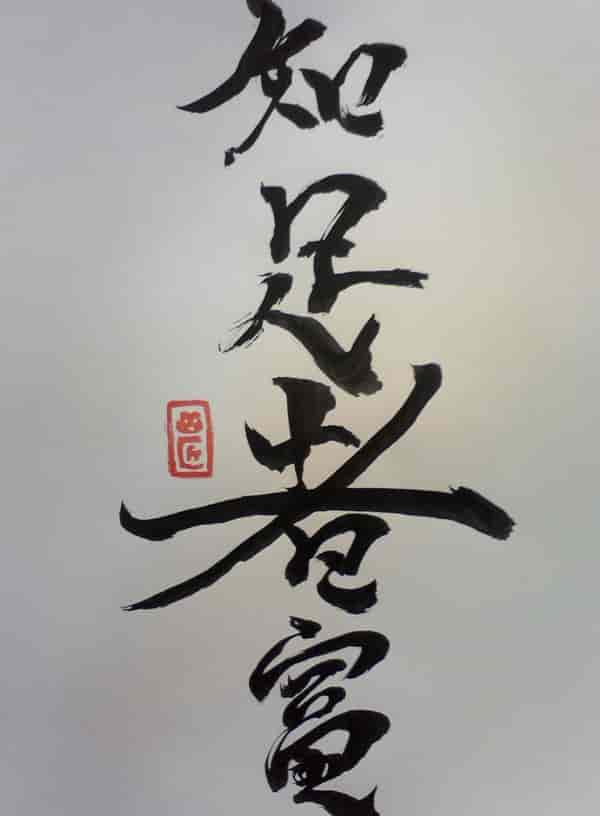 知足者富